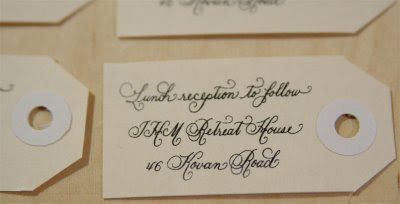 46 Kovan Road
Lunch reception to follow
IHM Retreat House
46 Kovan Road